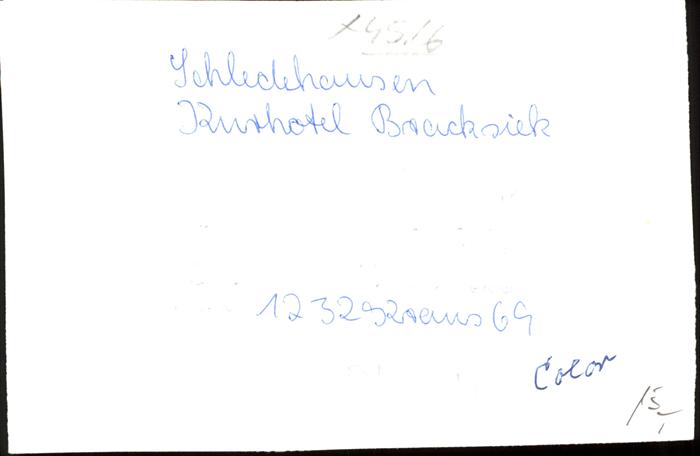 x45.16
Schledehausen
Kurhotel Bracksiek
123292 aus 69
Color
15,-